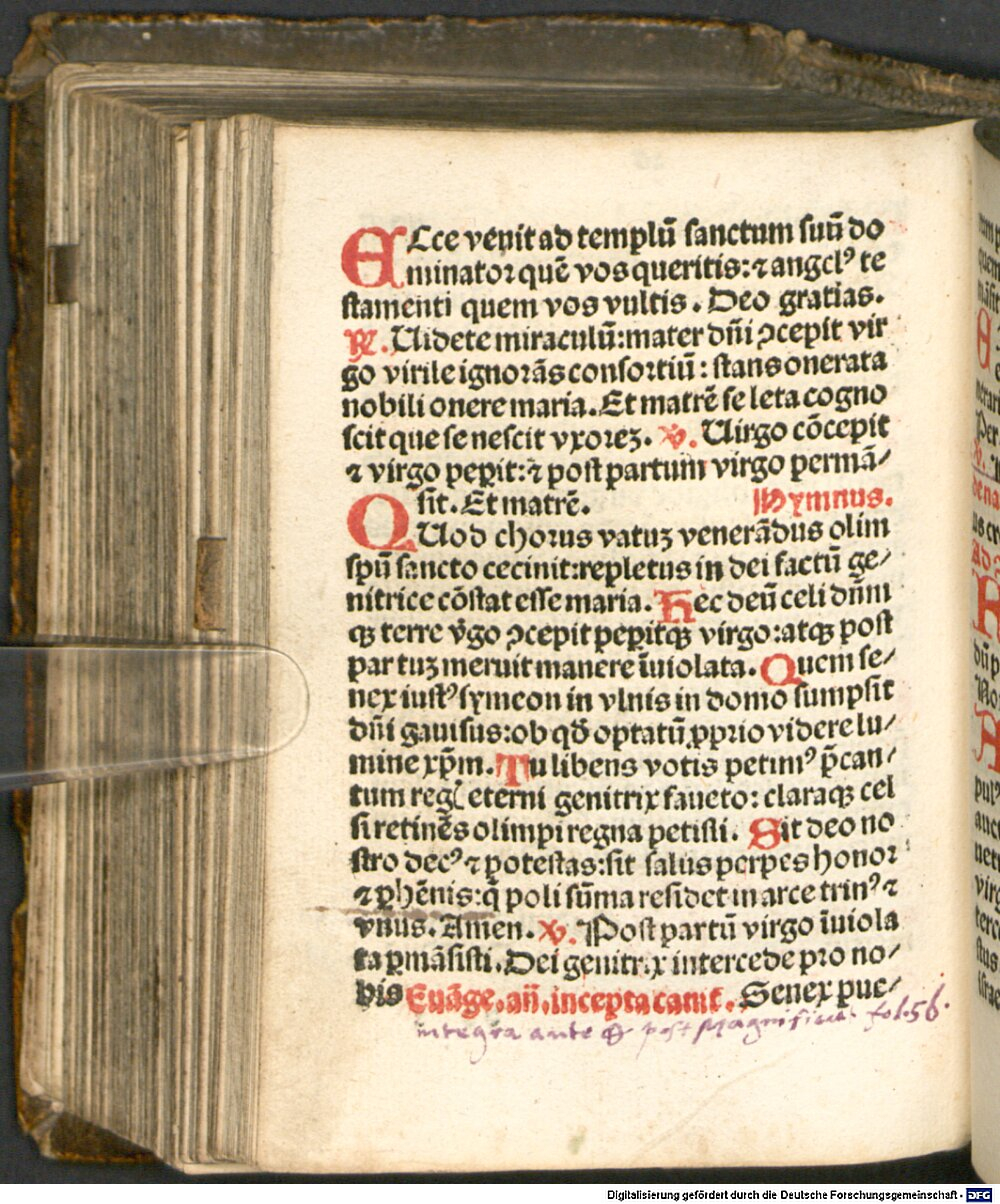 ECce venit ad templū sanctum suū do
minator quē vos queritis: ⁊ angelꝰ te
stamenti quem vos vultis. Deo gratias.
℟. Uidete miraculū: mater dñi ꝯcepit vir
go virile ignorās consortiū: stans onerata
nobili onere maria. Et matrē se leta cogno
scit que se nescit vxorez. ℣. Uirgo cōcepit
⁊ virgo peperit: ⁊ post partum virgo permā/
sit. Et matrē. Hymnus.
QUod chorus vatuȝ venerādus olim
spū sancto cecinit: repletus in dei factū ge/
nitrice cōstat esse maria. Hec deū celi dñm
qꝫ terre v̄go ꝯcepit peꝑitqꝫ virgo: atqꝫ post
partuȝ meruit manere īuiolata. Quem se/
nex iustꝰ symeon in vlnis in domo sumpsit
dñi gauisus: ob qđ optatū ꝓprio videre lu/
mine xp̄m. Tu libens votis petimꝰ p̄can/
tum reg eterni genitrix faueto: claraqꝫ cel
si retinēs olimpi regna petisti. Sit deo no
stro decꝰ ⁊ potestas: sit salus perpes honor
⁊ ꝑhēnis: q̄ poli sūma residet in arce trinꝰ ⁊
vnus. Amen. ℣. Post partū virgo īuiola
ta ꝑmāsisti. Dei genitrix intercede pro no/
bis Euāge. añ. incepta canit. Senex pue/
integra ante & post Magnificat. fol. 56.
Digitalisierung gefördert durch die Deutsche Forschungsgemeinschaft - DFG